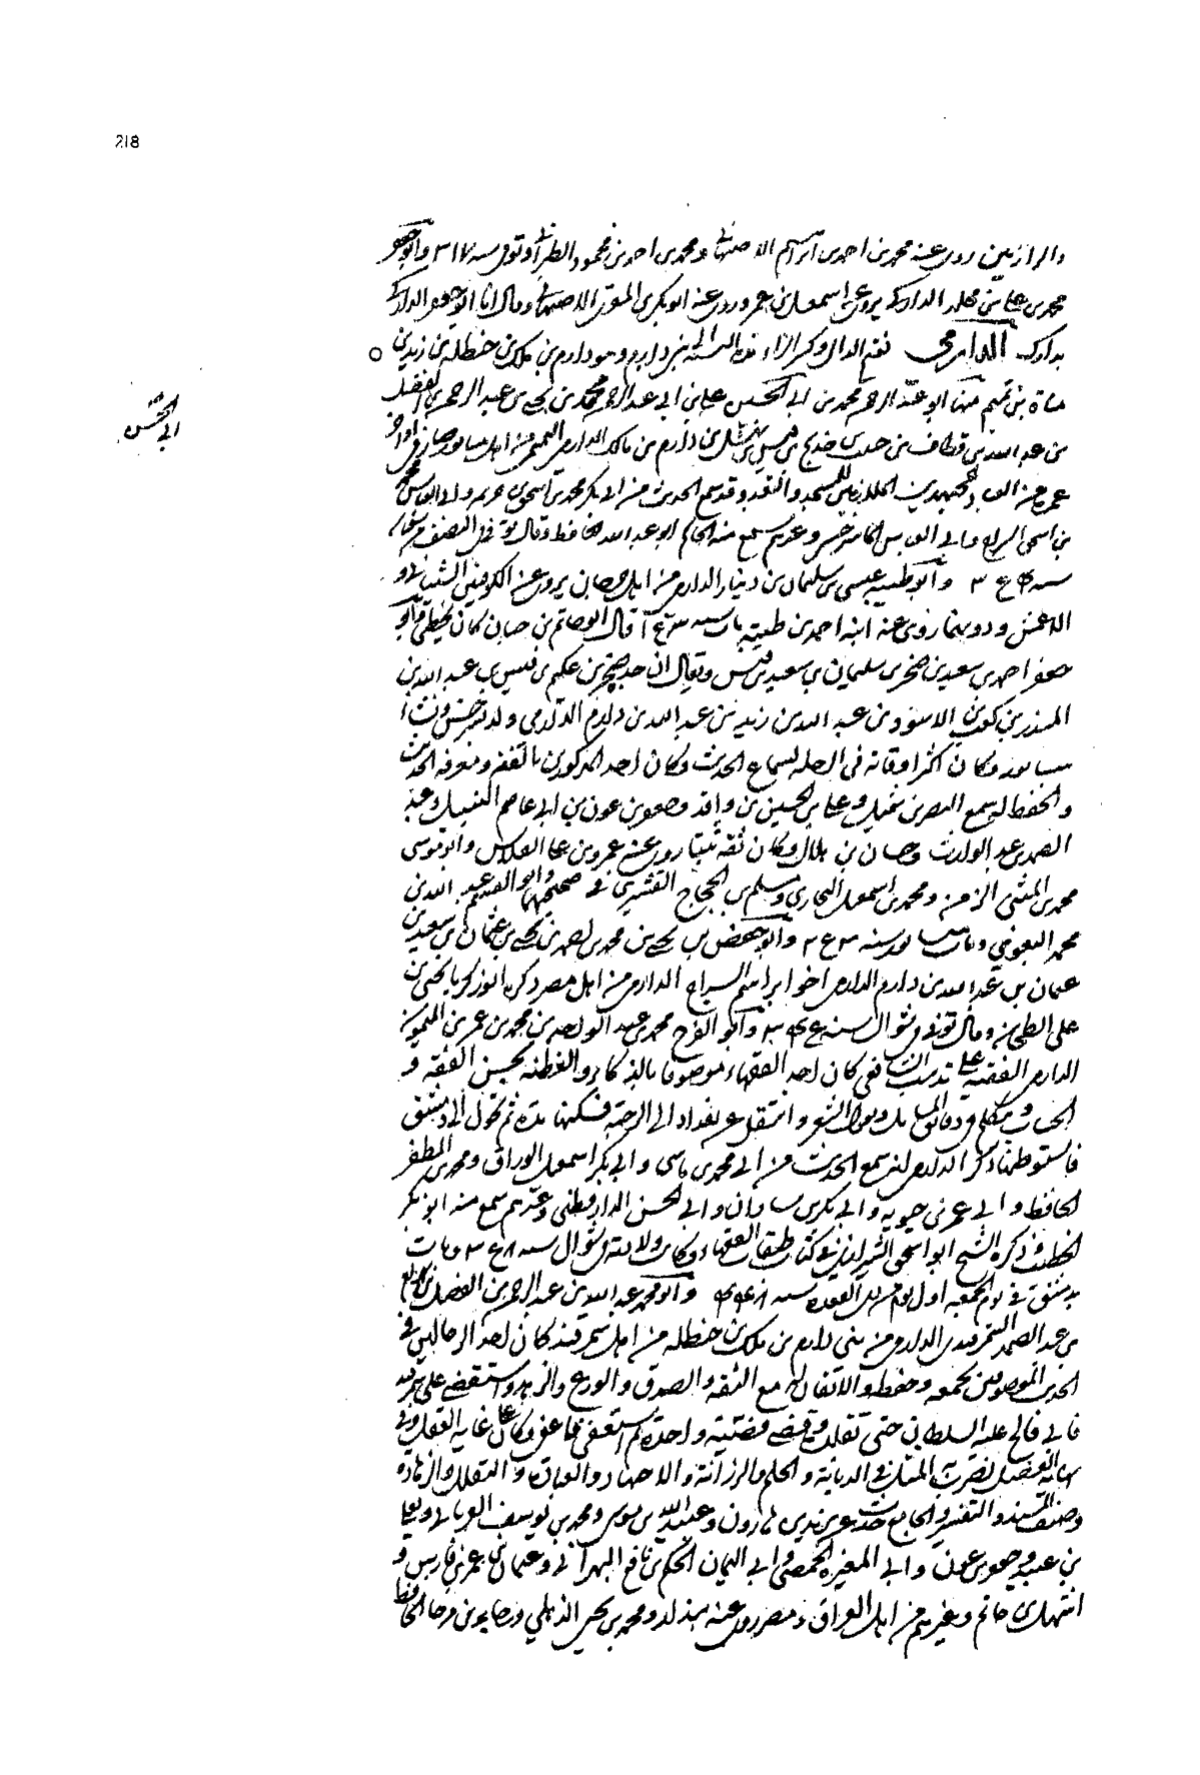 218
والرازيين روى عنه محمد بن احمد بن ابراهيم الاصبهاني ومحمد بن احمد بن محمود الطبراني وتوفي سنة ٣١٧ وابو جعفر
محمد بن علي بن مخلد الداركي يروي عن اسمعيل بن عمرو روى عنه ابو بكر بن المقري الاصبهاني وقال انا ابو جعفر الداركي
بدارك الدارمي بفتح الدال وكسر الراء هذه النسبة الى بني دارم وهو دارم بن مالك بن حنظلة بن زيد بن
مناة بن تميم منها ابو عبد الرحمن محمد بن ابي الحسين علي بن ابي عبد الرحمن محمد بن يحيى بن عبد الرحمن بن الفضل
ابي الحسن
بن عبد الله بن قطاف بن حبيب بن خديج بن قيس بن نهشل بن دارم بن مالك الدارمي التميمي من اهل نيسابور صار في اواخر
عمره من العباد المجتهدين الملازمين للمسجد والتعبد وقد سمع الحديث من ابي بكر محمد بن اسحق بن خزيمة وابي العباس محمد
بن اسحق السراج وابي العباس الماسرجسي وغيرهم سمع منه الحاكم ابو عبد الله الحافظ وقال توفي في النصف من شعبان
سنة ٣ وابو طيبة عيسى بن سليمان بن دينار الدارمي من اهل جرجان يروي عن الكوفيين الشيباني و
الاعمش ودونهما روى عنه ابنه احمد بن طيبة مات سنة قال ابو حاتم بن حبان كان يخطئ وابو
جعفر احمد بن سعيد بن صخر بن سليمان بن سعيد بن قيس ويقال ان جده صخر بن عكيم بن قيس بن عبد الله بن
المنذر بن كعب بن الاسود بن عبد الله بن زيد بن عبد الله بن دارم الدارمي ولد بسرخس ونشأ
بنيسابور وكان اكثر اوقاته في الرحلة لسماع الحديث وكان احد المذكورين بالفقه ومعرفة الحديث
والحفظ له سمع النضر بن شميل وعلي بن الحسين بن واقد وجعفر بن عون وابي عاصم النبيل وعبد
الصمد بن عبد الوارث وحبان بن هلال وكان ثقة ثبتا روى عنه عمرو بن علي الفلاس وابو موسى
محمد بن المثنى الزمن ومحمد بن اسمعيل البخاري ومسلم بن الحجاج القشيري في صحيحيهما وابو القاسم عبد الله بن
محمد البغوي ومات بنيسابور سنة وابو حفص بن يحيى بن محمد بن احمد بن يحيى بن عثمان بن سعيد بن
عثمان بن عبد الله بن دارم الدارمي اخو ابراهيم السراج الدارمي من اهل مصر ذكره ابو زكريا يحيى بن
علي الطحان وقال توفي في شوال سنة وابو الفرج محمد بن عبد الواحد بن محمد بن عمر بن الميمون
الدارمي الفقيه على مذهب الشافعي كان احد الفقهاء موصوفا بالذكاء والفطنة يحسن الفقه و
الحساب ويتكلم في دقائق المسائل ويقول الشعر وانتقل عن بغداد الى الرحبة فسكنها مدة ثم تحول الى دمشق
فاستوطنها ذكر الدارمي انه سمع الحديث من ابي محمد بن ماسي وابي بكر اسمعيل الوراق ومحمد بن المظفر
الحافظ وابي عمر بن حيويه وابي بكر بن شاذان وابي الحسن الدارقطني وغيرهم سمع منه ابو بكر
الخطيب وذكره الشيخ ابو اسحق الشيرازي في كتاب طبقات الفقهاء وكان ولادته في شوال سنة ومات
بدمشق في يوم الجمعة اول يوم من ذي القعدة سنة وابو محمد عبد الله بن عبد الرحمن بن الفضل بن بهرام
بن عبد الصمد السمرقندي الدارمي من بني دارم بن مالك بن حنظلة من اهل سمرقند كان احد الرحالين في
الحديث الموصوفين بجمعه وحفظه والاتقان له مع الثقة والصدق والورع والزهد واستقضى على سمرقند
فابى فالح عليه السلطان حتى تقلده وقضى قضية واحدة ثم استعفى فاعفي وكان على غاية العقل وفي
نهاية الفضل يضرب به المثل في الديانة والحلم والرزانة والاجتهاد والعبادة والتقلل والزهادة
وصنف المسند والتفسير والجامع حدث عن يزيد بن هارون وعبيد الله بن موسى ومحمد بن يوسف الفريابي ويعلى
بن عبيد وجعفر بن عون وابي المغيرة الحمصي وابي اليمان الحكم بن نافع البهراني وعثمان بن عمر بن فارس و
اشهل بن حاتم وغيرهم من اهل العراق ومصر روى عنه بندار ومحمد بن يحيى الذهلي ورجاء بن مرجا الحافظ